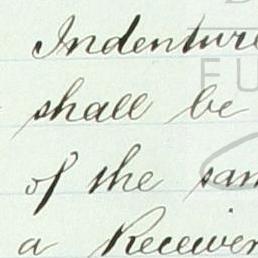 Indenture
shall be
of the sam
a Receiver